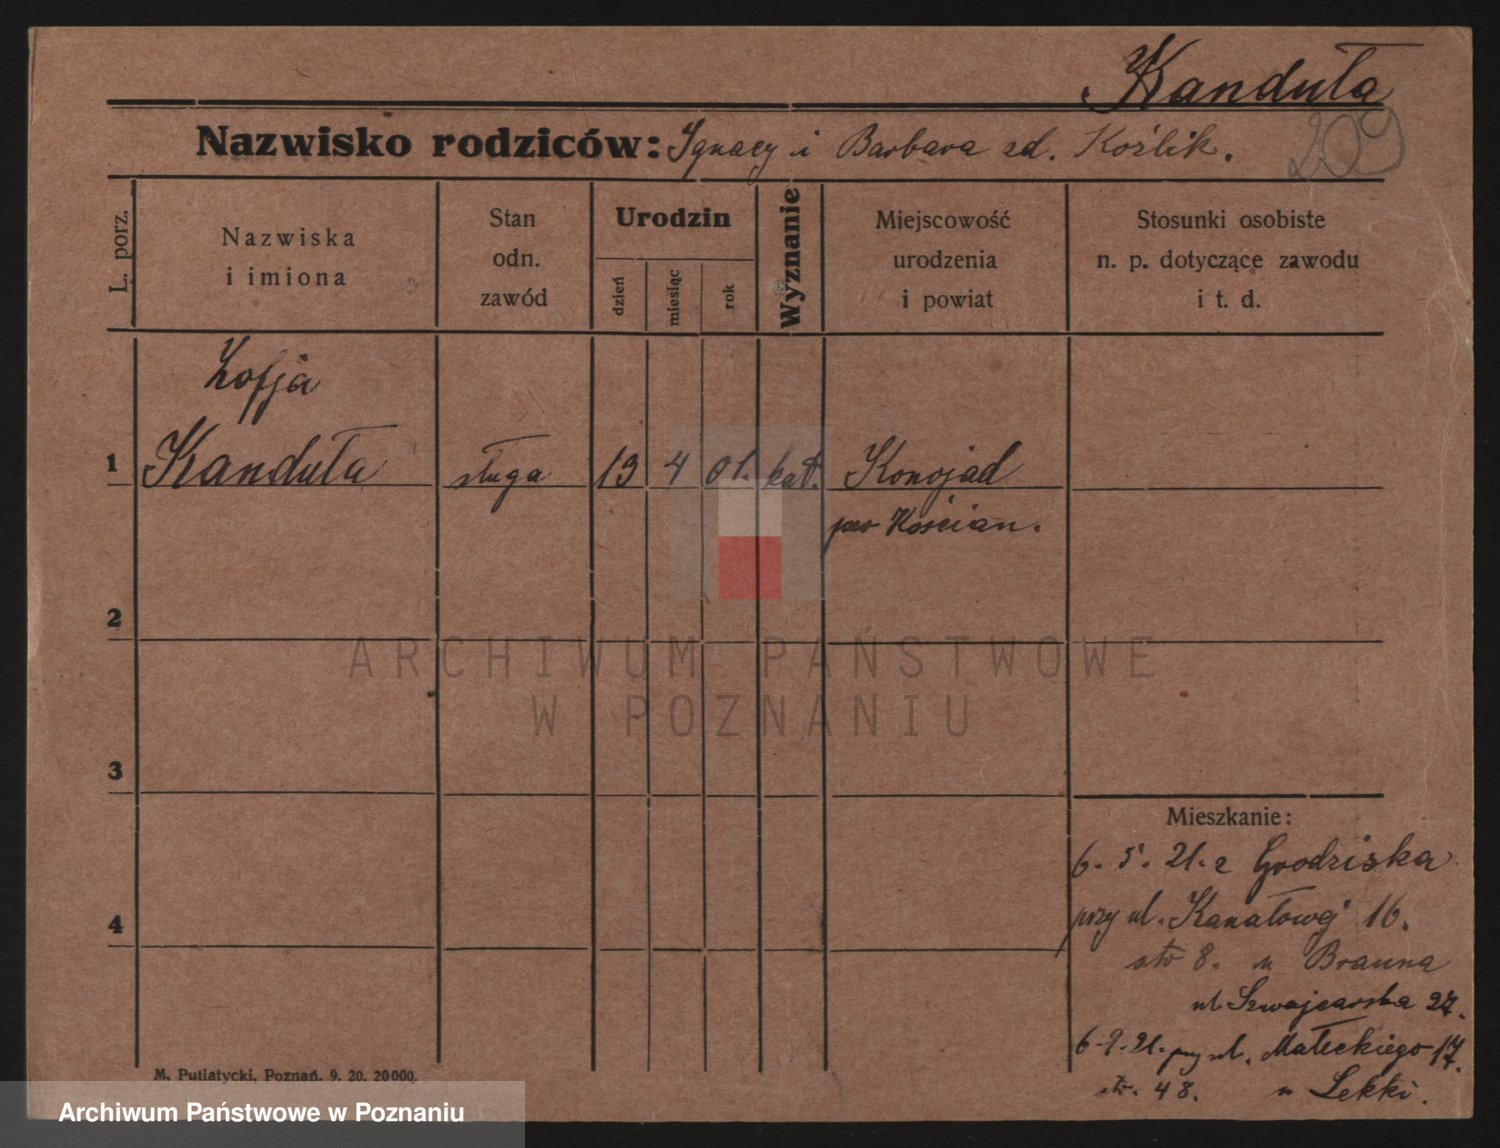 Kanduła
209
Nazwisko rodziców: Ignacy i Barbara zd. Koźlik.
L. porz.
Nazwiska
i imiona
Stan
odn.
zawód
Urodzin
dzień
miesiąc
rok
Wyznanie
Miejscowość
urodzenia
i powiat
Stosunki osobiste
n. p. dotyczące zawodu
i t. d.
Zofja
1 Kanduła sługa 19 4 01. kat. Konojad
pow Kościan.
2
3
4
Mieszkanie:
6. 5. 21. z Grodziska
przy ul. Kanałowej 16.
str 8. u Brauna
ul. Szwajcarska 27.
6-9-21. przy ul. Małeckiego 17.
str. 48. u Lekki.
M. Putiatycki, Poznań. 9. 20. 20000.
ARCHIWUM PAŃSTWOWE
W POZNANIU
Archiwum Państwowe w Poznaniu